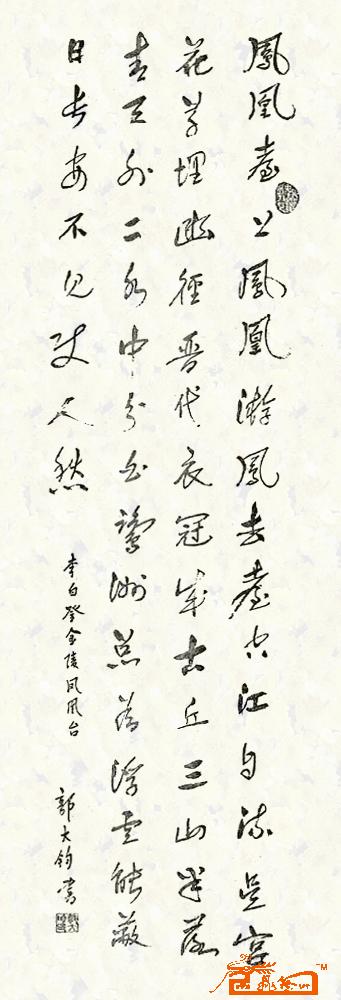 鳳凰臺上鳳凰游鳳去臺空江自流吳宮
花草埋幽徑晉代衣冠成古丘三山半落
青天外二水中分白鷺洲總為浮雲能蔽
日長安不見使人愁
李白登金陵凤凰台
郭大钧書